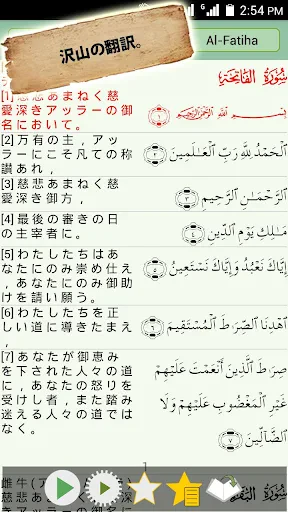 2:54 PM
沢山の翻訳。
Al-Fatiha
سُورَةُ الفَاتِحَةِ
愛深きアッラーの御
名において。
بِسْمِ ٱللَّهِ ٱلرَّحْمَٰنِ ٱلرَّحِيمِ
[2] 万有の主，アッ
ラーにこそ凡ての称
讃あれ，
ٱلْحَمْدُ لِلَّهِ رَبِّ ٱلْعَٰلَمِينَ
[3] 慈悲あまねく慈
愛深き御方，
ٱلرَّحْمَٰنِ ٱلرَّحِيمِ
[4] 最後の審きの日
の主宰者に。
مَٰلِكِ يَوْمِ ٱلدِّينِ
[5] わたしたちはあ
なたにのみ崇め仕え
，あなたにのみ御助
けを請い願う。
إِيَّاكَ نَعْبُدُ وَإِيَّاكَ نَسْتَعِينُ
[6] わたしたちを正
しい道に導きたまえ
，
ٱهْدِنَا ٱلصِّرَٰطَ ٱلْمُسْتَقِيمَ
[7] あなたが御恵み
を下された人々の道
に，あなたの怒りを
受けし者，また踏み
迷える人々の道では
なく。
صِرَٰطَ ٱلَّذِينَ أَنْعَمْتَ عَلَيْهِمْ
غَيْرِ ٱلْمَغْضُوبِ عَلَيْهِمْ وَلَا
ٱلضَّآلِّينَ
1